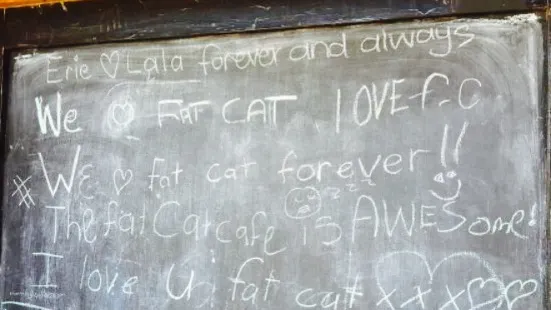 Erie ♡ Lala forever and always
We ♡ FAT CATT LOVE F.C
# We ♡ fat cat forever!!
The fat Cat cafe is zzz AWESome!
I love U! fat cat xxx♡♡